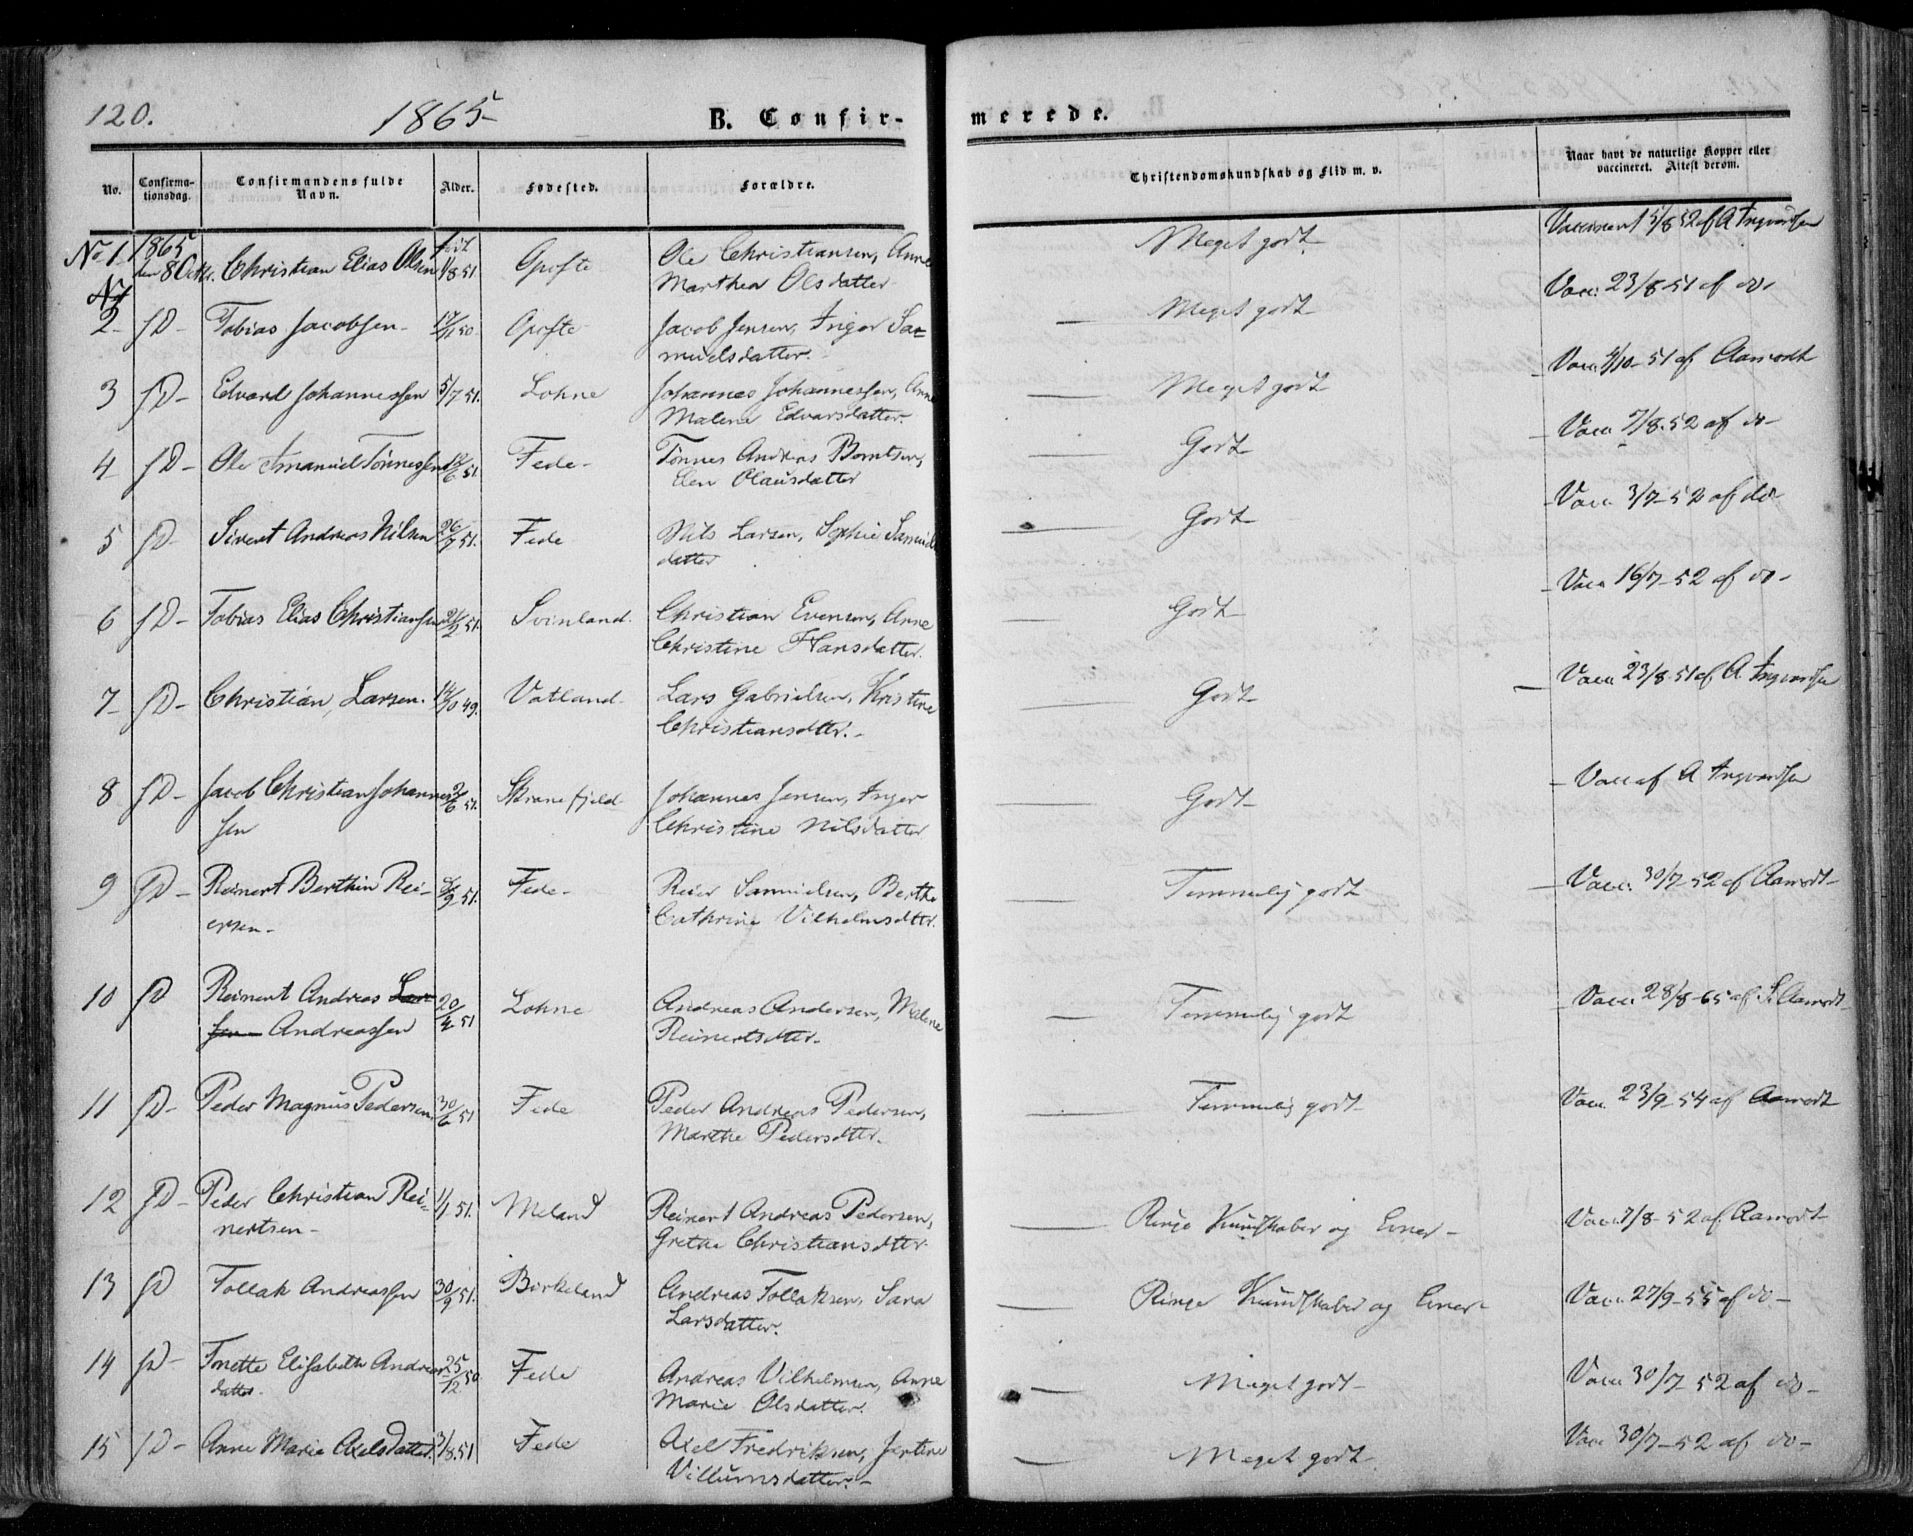 120. 1865 B. Confir- merede.
No. Confirma-tionsdag. Confirmandens fulde Navn. Alder. Fødested. Forældre. Christendomskundskab og Flid m. v. Naar havt de naturlige Kopper eller vaccineret. Attest derom.
No 1. 1865 den 8 Octbr. Christian Elias Olsen født 1/8 51. Opofte Ole Christiansen, Anne Meget godt Vaccineret 15/8 52 af A Ingvardsen
Marthea Olsdatter
2 sD- Tobias Jacobsen 50. Opofte Jacob Jensen, Inger Sa- Meget godt Vacc. 23/8 51 af do-
muelsdatter.
3 sD- Edvard Johannessen 5/7 51. Lohne Johannes Johannessen, Anne Meget godt Vacc. 4/10-51 af Aamodt
Malene Edvarsdatter.
4 sD- Ole Emanuel Tønnessen 51. Fede- Tønnes Andreas Berntsen, Godt Vacc. 7/8-52 af do-
Elen Olausdatter
5 sD- Sivert Andreas Nilsen 26/7 51. Fede Nils Larsen, Sophie Samuels Godt Vacc. 3/7-52 af do-
datter
6 sD- Tobias Elias Christiansen 51. Svinland. Christian Evensen, Anne Godt Vacc. 16/7-52 af do-
Christine Hansdatter.
7 sD- Christian Larsen. 14/10 49. Vatland Lars Gabrielsen, Kristine Godt Vacc. 23/8-51 af A Ingvardsen
Christiansdtter.-
8 sD- Jacob Christian Johannes 51. Skranefjeld Johannes Jensen, Inger Godt Vacc af A Ingvardsen
sen Christine Nilsdatter
9 sD- Reinert Berthin Rei- 51. Fede- Reier Samuelsen, Berthe Temmelig godt Vacc. 30/7-52 af Aamodt-
ersen- Cathrine Vilhelmsdtter.
10 sD Reinert Andreas Lar- 20/4 51 Lohne Andreas Andersen, Malene Temmelig godt Vacc. 28/8-65 af S. Aamodt-
sen Andreassen Reinertsdtter-
11 sD- Peder Magnus Pedersen 30/6 51 Fede Peder Andreas Pedersen, Temmelig godt Vacc. 23/9-54 af Aamodt
Marthe Pedersdtter-
12 sD- Peder Christian Rei- 1/1 51. Meland Reinert Andreas Pedersen, Ringe Kundskaber og Evner- Vacc. 7/8-52 af Aamodt-
nertsen- Grethe Christiansdtter
13 sD Tollak Andreassen 30/9 51. Birkeland Andreas Tollaksen, Sara Ringe Kundskaber og Evner- Vacc. 27/9-55 af do-
Larsdatter.
14 sD- Tonette Elisabeth Andreas 25/12 50 Fede Andreas Vilhelmsen, Anne Meget godt- Vacc. 30/7-52 af do-
datter- Marie Olsdatter.
15 sD- Anne Marie Axelsdatter. 3/8 51 Fede Axel Fredriksen, Jertine Meget godt Vacc 30/7-52 af do-
Villumsdatter.-